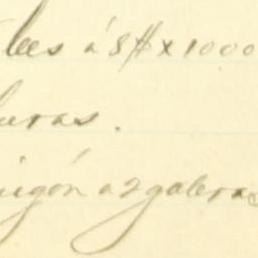 lees á 8 $ x 1000
luras.
nigón a 2 galeras